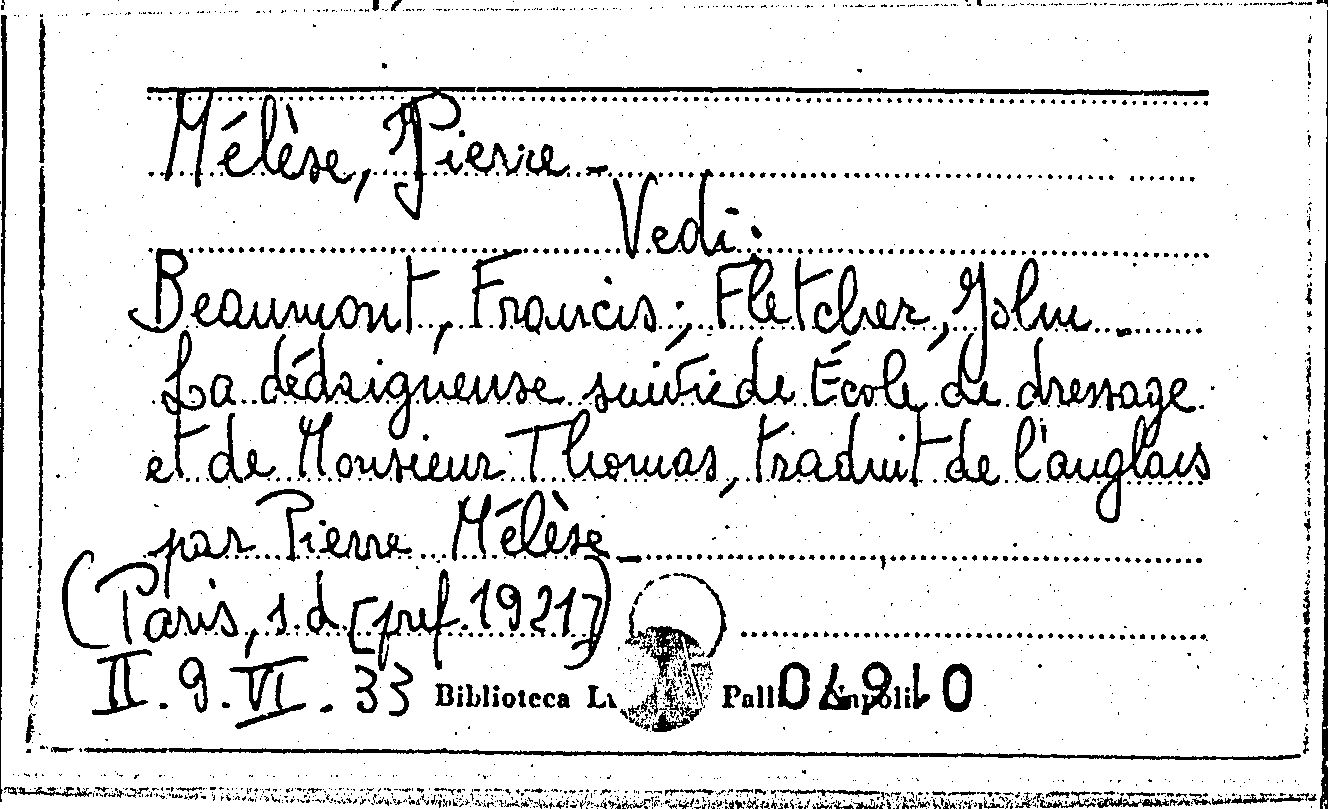 Mélèse, Pierre -
Vedi:
Beaumont, Francis; Fletcher, John -
La dédaigneuse suivie de École de dressage
et de Monsieur Thomas, traduit de l'anglais
par Pierre Mélèse -
(Paris, s.d. [pref. 1921])
II. 9. VI. 33 Biblioteca